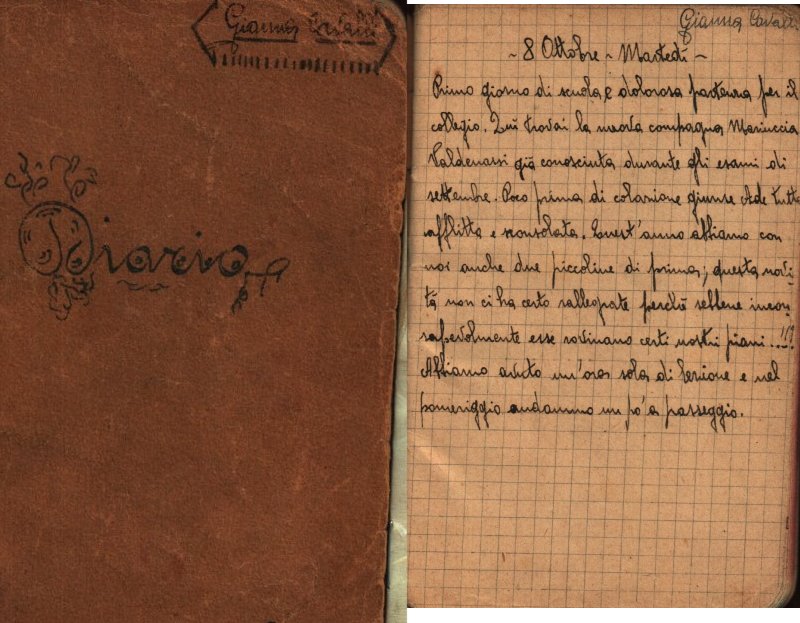 Gianna Cavalli
Diario
Gianna Cavalli
~ 8 Ottobre ~ Martedì ~
Primo giorno di scuola e dolorosa partenza per il
collegio. Qui trovai la nuova compagna Mariuccia
Valdenassi già conosciuta durante gli esami di
settembre. Poco prima di colazione giunse Ade tutta
afflitta e sconsolata. Quest'anno abbiamo con
noi anche due piccoline di prima; questa novi-
tà non ci ha certo rallegrate perchè sebbene incon-
sapevolmente esse rovinano certi nostri piani...!!?
Abbiamo avuto un'ora sola di lezione e nel
pomeriggio andammo un po' a passeggio.